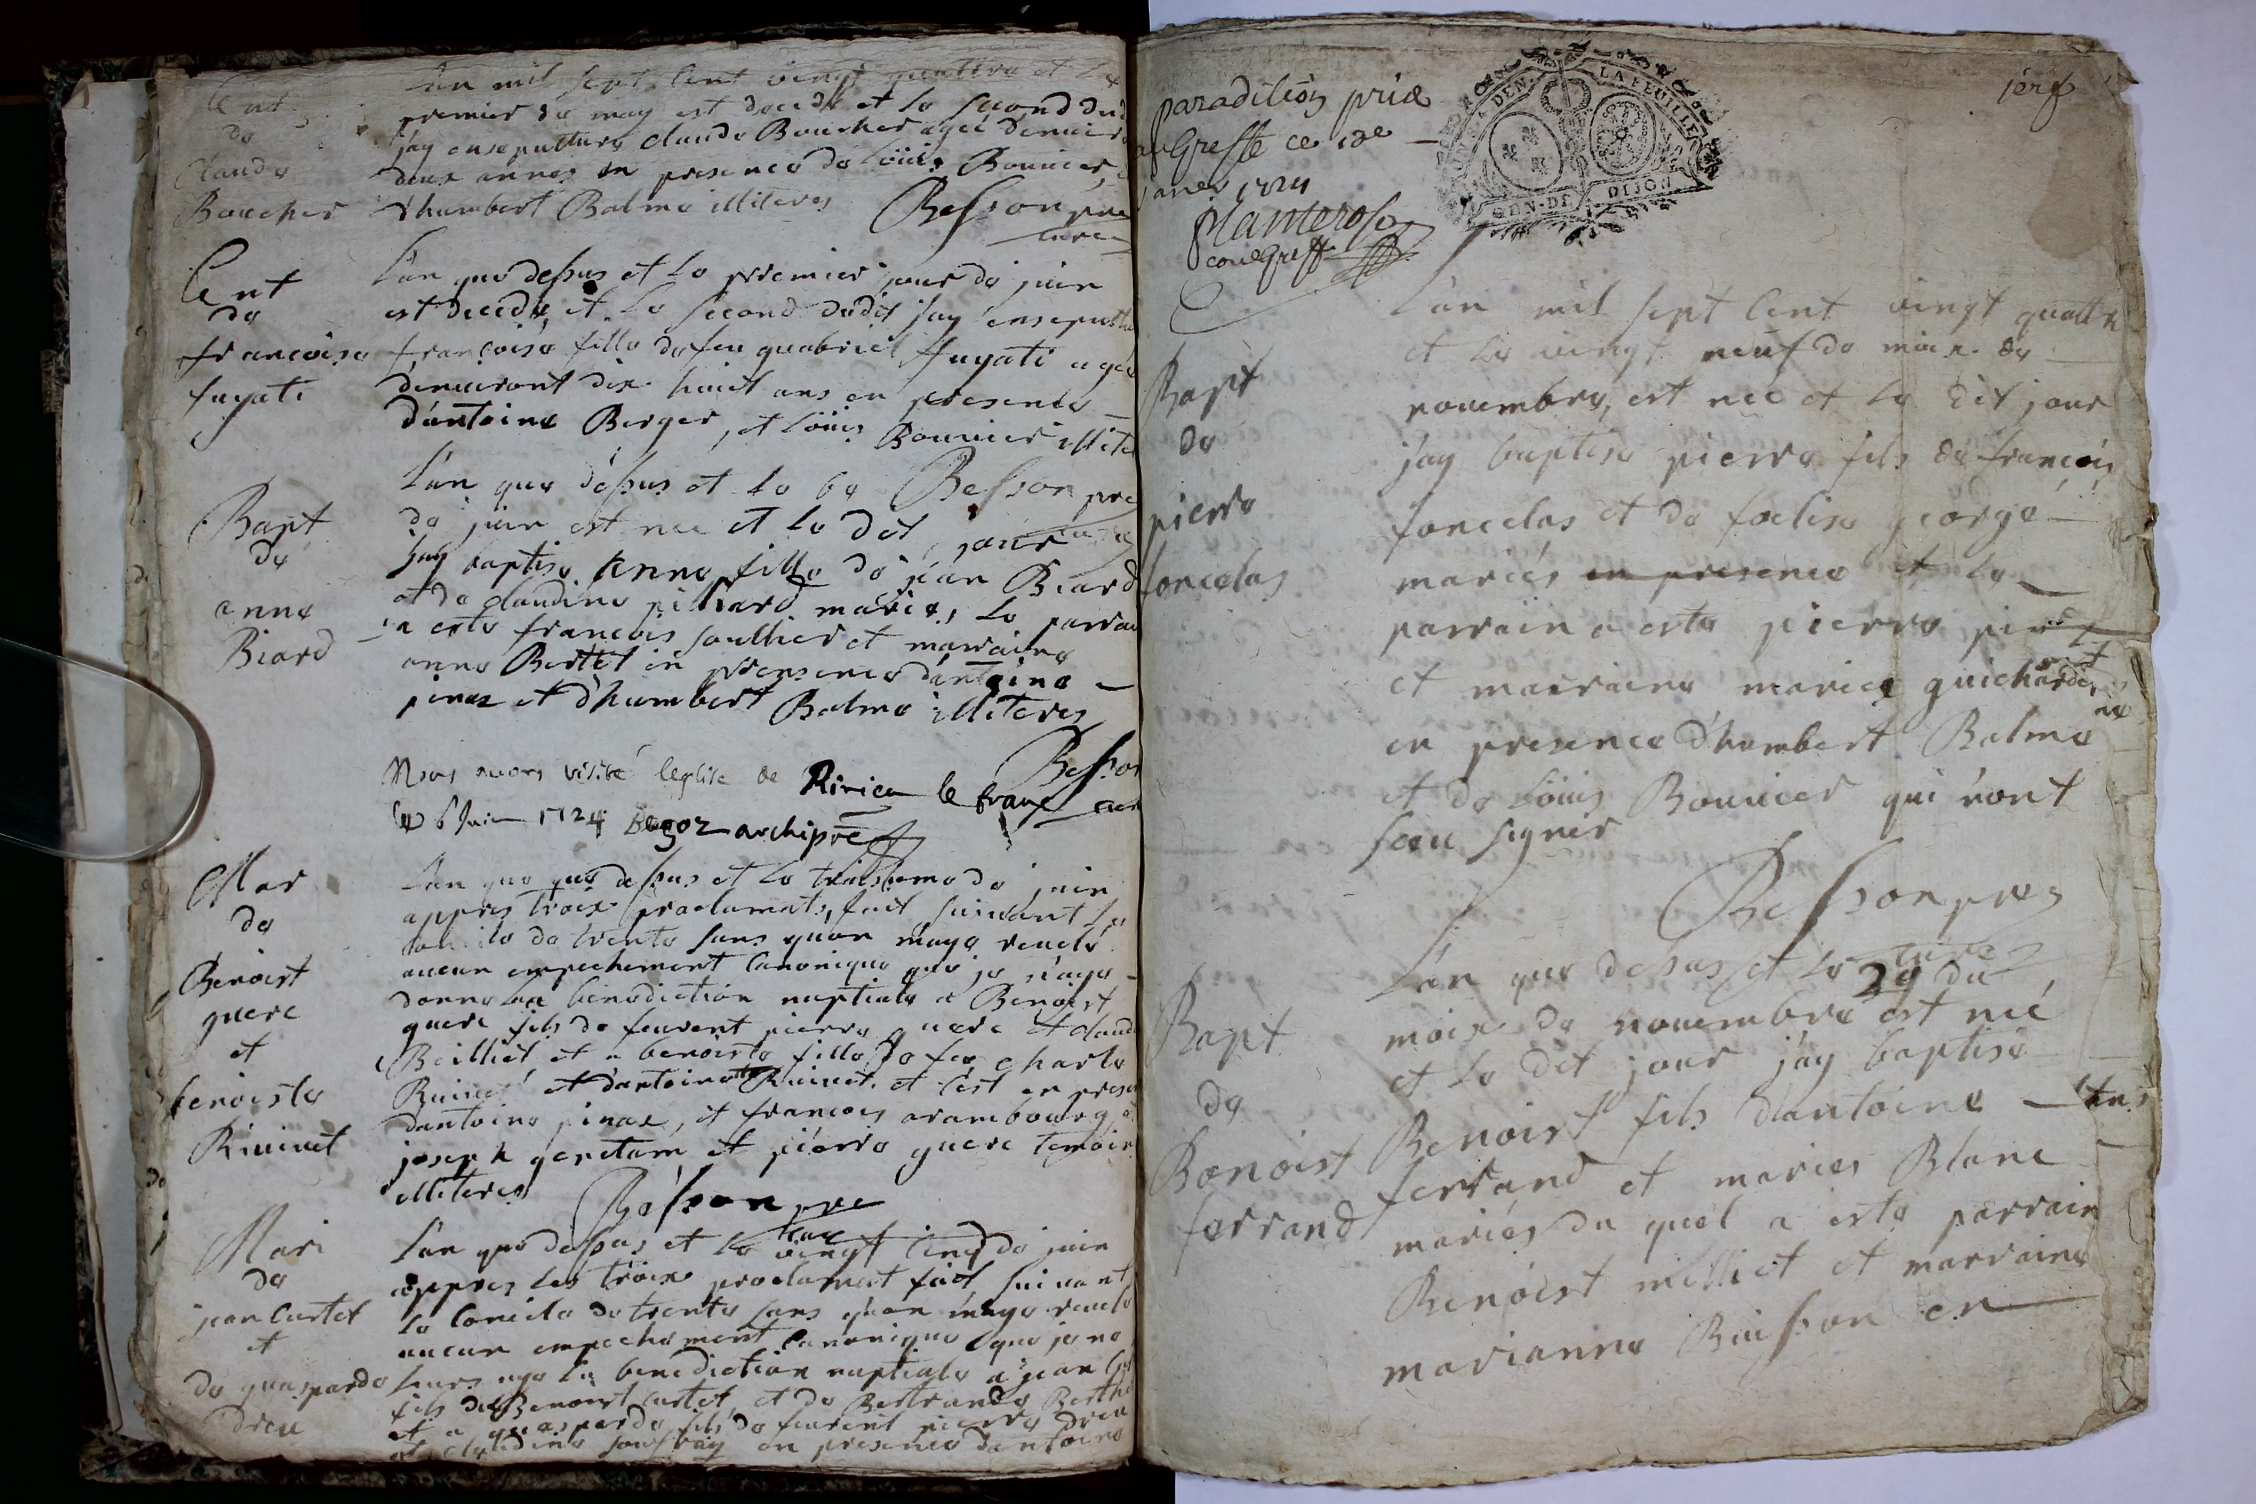 Ent
de
Claude
Boucher
L'an mil sept cent vingt quattre et le
premier de may est decede et le second dud
j'ay ensepulture claude Boucher agée denuiro
deux annes en presence de Louis Bouuier, e
d'humbert Balme illiteres Besson pre
cure
Ent
de
francoise
fuyati
L'an que dessus et le premier jour de juin
est decede, et le second dudit j'ay ensepultu
françoise fille de feu guabriel fuyati agée
denuiront dix huict ans en presence
d'antoine Berger, et Louis Bouuier illite
Besson pre
Bapt
de
anne
Biard
L'an que dessus et le 6e
de juin est nee et le dit jour
j'ay baptise Anne fille de jean Biard
et de claudine pilliard maries, le parrai
a este francois soullier et marraine
anne Bertet en presence d'antoine
pinax et d'humbert Balme illiteres
Besson
cure
Nous avons visité leglise de Ririeu le franc
le 6 Juin 1724 Begoz archipre
Mar
de
Benoist
guere
et
benoiste
Riuiuet
L'an que que dessus et le troisieme de juin
appres troix proclamats, fait suiuant le
concile de trente sans quon m'aye reuele
aucun empechement canonique que je n'aye
donne la benediction nuptiale a Benoist
guere fils de feurent pierre guere et claud
Beilliet et a benoiste fille de feu charle
Riuiuet et d'antoinette Riuiuet. et c'est en prese
dantoine pinax, et francois arambourg, e
joseph geretam et pierre guere temoin
illiteres Besson pre
cure
Mari
de
jean Curtet
et
de guasparde
Dreu
L'an que dessus et le vingt cinq de juin
appres les troix proclamat fait suiuant
le concile de trente sans quon m'aye reuele
aucun empechement canonique que je ne
leurs aye la benediction nuptiale a jean Cur
fils de Benoist curtet, et de Bertrande Berthe
et a guasparde fils de feurent pierre Dreu
et claudine soufray en presence dantoine
paradition prise
au Greffe ce 12e
janer 1724
Planteroso
com Greff
GEN. DE DIJON
LA FEUILLE
DEN.
1ere
Bapt
de
pierre
Joncelas
L'an mil sept cent vingt quattre
et le vingt neuf de moix de
nouembre, est nee et le dit jour
j'ay baptise pierre fils de françois
Joncelas et de foelise george
mariés en presence et le
parrain a este pierre
et marraine marie guicharde
en presence d'humbert Balme
et de Louis Bouuier qui n'ont
sceu signer
Besson pre
cure
Bapt
de
Benoist
ferrand
L'an que dessus et le 29 du
moix de nouembre est né
et le dit jour j'ay baptisé
Benoist fils d'antoine
ferrand et maries Blanc
mariés du quel a este parrain
Benoist milliet et marraine
marianne Buisson en